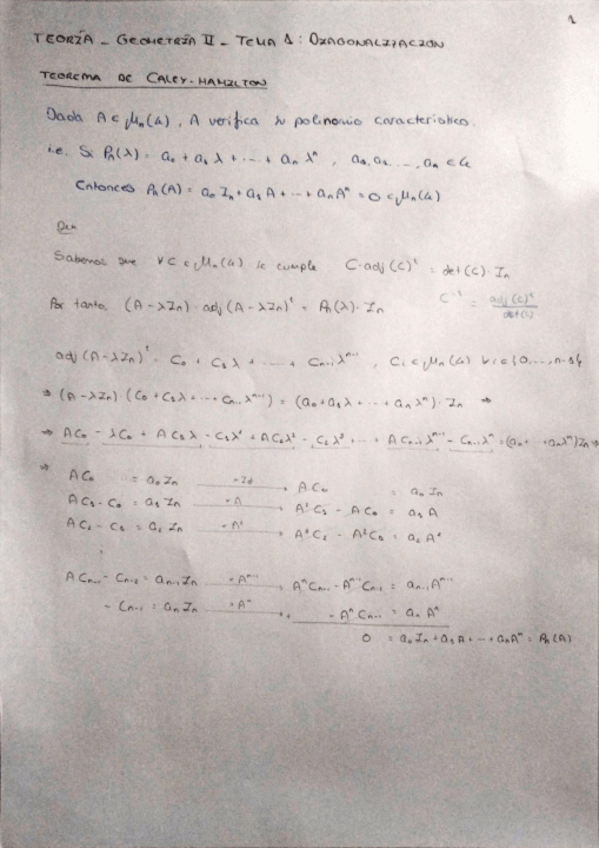 1
TEORÍA - GEOMETRÍA II - TEMA 1: DIAGONALIZACIÓN
TEOREMA DE CALEY-HAMILTON
Dada A ∈ Mₙ(k), A verifica su polinomio característico.
i.e. Si Pₐ(λ) = a₀ + a₁ λ + ... + aₙ λⁿ, a₀, a₁, ..., aₙ ∈ k
Entonces Pₐ(A) = a₀ Iₙ + a₁ A + ... + aₙ Aⁿ = 0 ∈ Mₙ(k)
Dem
Sabemos que ∀ C ∈ Mₙ(k) se cumple C·adj(C)ᵗ = det(C)·Iₙ
C⁻¹ = adj(C)ᵗ / det(C)
Por tanto, (A - λIₙ)·adj(A - λIₙ)ᵗ = Pₐ(λ)·Iₙ
adj(A - λIₙ)ᵗ = C₀ + C₁ λ + ... + Cₙ₋₁ λⁿ⁻¹, Cᵢ ∈ Mₙ(k) ∀ i ∈ {0, ..., n-1}
⇒ (A - λIₙ)·(C₀ + C₁ λ + ... Cₙ₋₁ λⁿ⁻¹) = (a₀ + a₁ λ + ... aₙ λⁿ)·Iₙ ⇒
⇒ AC₀ - λC₀ + AC₁ λ - C₁ λ² + AC₂ λ² - C₂ λ³ + ... + ACₙ₋₁ λⁿ⁻¹ - Cₙ₋₁ λⁿ = (a₀ + ... aₙ λⁿ) Iₙ ⇒
⇒ AC₀ = a₀ Iₙ —·Id→ AC₀ = a₀ Iₙ
AC₁ - C₀ = a₁ Iₙ —·A→ A²C₁ - AC₀ = a₁ A
AC₂ - C₁ = a₂ Iₙ —·A²→ A³C₂ - A²C₁ = a₂ A²
⋮
ACₙ₋₁ - Cₙ₋₂ = aₙ₋₁ Iₙ —·Aⁿ⁻¹→ AⁿCₙ₋₁ - Aⁿ⁻¹Cₙ₋₂ = aₙ₋₁ Aⁿ⁻¹
- Cₙ₋₁ = aₙ Iₙ —·Aⁿ→ + - AⁿCₙ₋₁ = aₙ Aⁿ
0 = a₀ Iₙ + a₁ A + ... + aₙ Aⁿ = Pₐ(A)